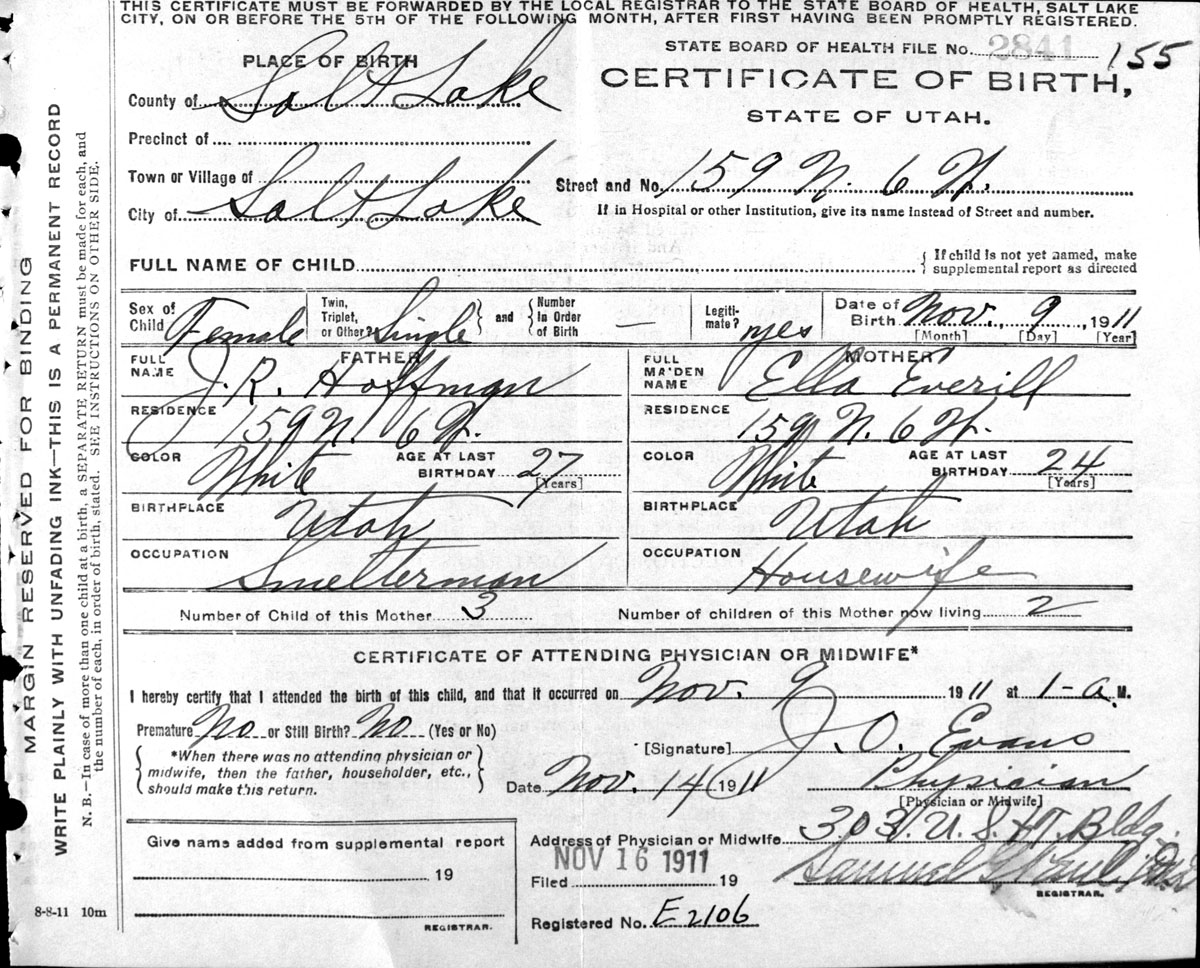 THIS CERTIFICATE MUST BE FORWARDED BY THE LOCAL REGISTRAR TO THE STATE BOARD OF HEALTH, SALT LAKE
CITY, ON OR BEFORE THE 5TH OF THE FOLLOWING MONTH, AFTER FIRST HAVING BEEN PROMPTLY REGISTERED.
MARGIN RESERVED FOR BINDING
WRITE PLAINLY WITH UNFADING INK—THIS IS A PERMANENT RECORD
N. B.—In case of more than one child at a birth, a SEPARATE RETURN must be made for each, and
the number of each, in order of birth, stated. SEE INSTRUCTIONS ON OTHER SIDE.
STATE BOARD OF HEALTH FILE No. 2841 155
PLACE OF BIRTH
CERTIFICATE OF BIRTH,
STATE OF UTAH.
County of Salt Lake
Precinct of
Town or Village of
Street and No. 159 N. 6 W.
City of Salt Lake
If in Hospital or other Institution, give its name instead of Street and number.
FULL NAME OF CHILD { If child is not yet named, make
supplemental report as directed
Sex of Child Female Twin, Triplet, or Other? Single } and { Number in Order of Birth — Legiti-mate? yes Date of Birth Nov. 9, 1911
[Month] [Day] [Year]
FATHER MOTHER
FULL NAME J. R. Hoffman FULL MAIDEN NAME Ella Everill
RESIDENCE 159 N. 6 W. RESIDENCE 159 N. 6 W.
COLOR White AGE AT LAST BIRTHDAY 27 [Years] COLOR White AGE AT LAST BIRTHDAY 24 [Years]
BIRTHPLACE Utah BIRTHPLACE Utah
OCCUPATION Smelterman OCCUPATION Housewife
Number of Child of this Mother 3 Number of children of this Mother now living 2
CERTIFICATE OF ATTENDING PHYSICIAN OR MIDWIFE*
I hereby certify that I attended the birth of this child, and that it occurred on Nov. 9 1911 at 1-a M.
Premature No or Still Birth? No (Yes or No)
[Signature] J. O. Evans
{ *When there was no attending physician or
midwife, then the father, householder, etc.,
should make this return. }
Date Nov. 14 1911 Physician
[Physician or Midwife]
Give name added from supplemental report
Address of Physician or Midwife 303 U. S. Bldg.
NOV 16 1911
19
Filed 19 Samuel
REGISTRAR.
8-8-11 10m
REGISTRAR.
Registered No. E 2106